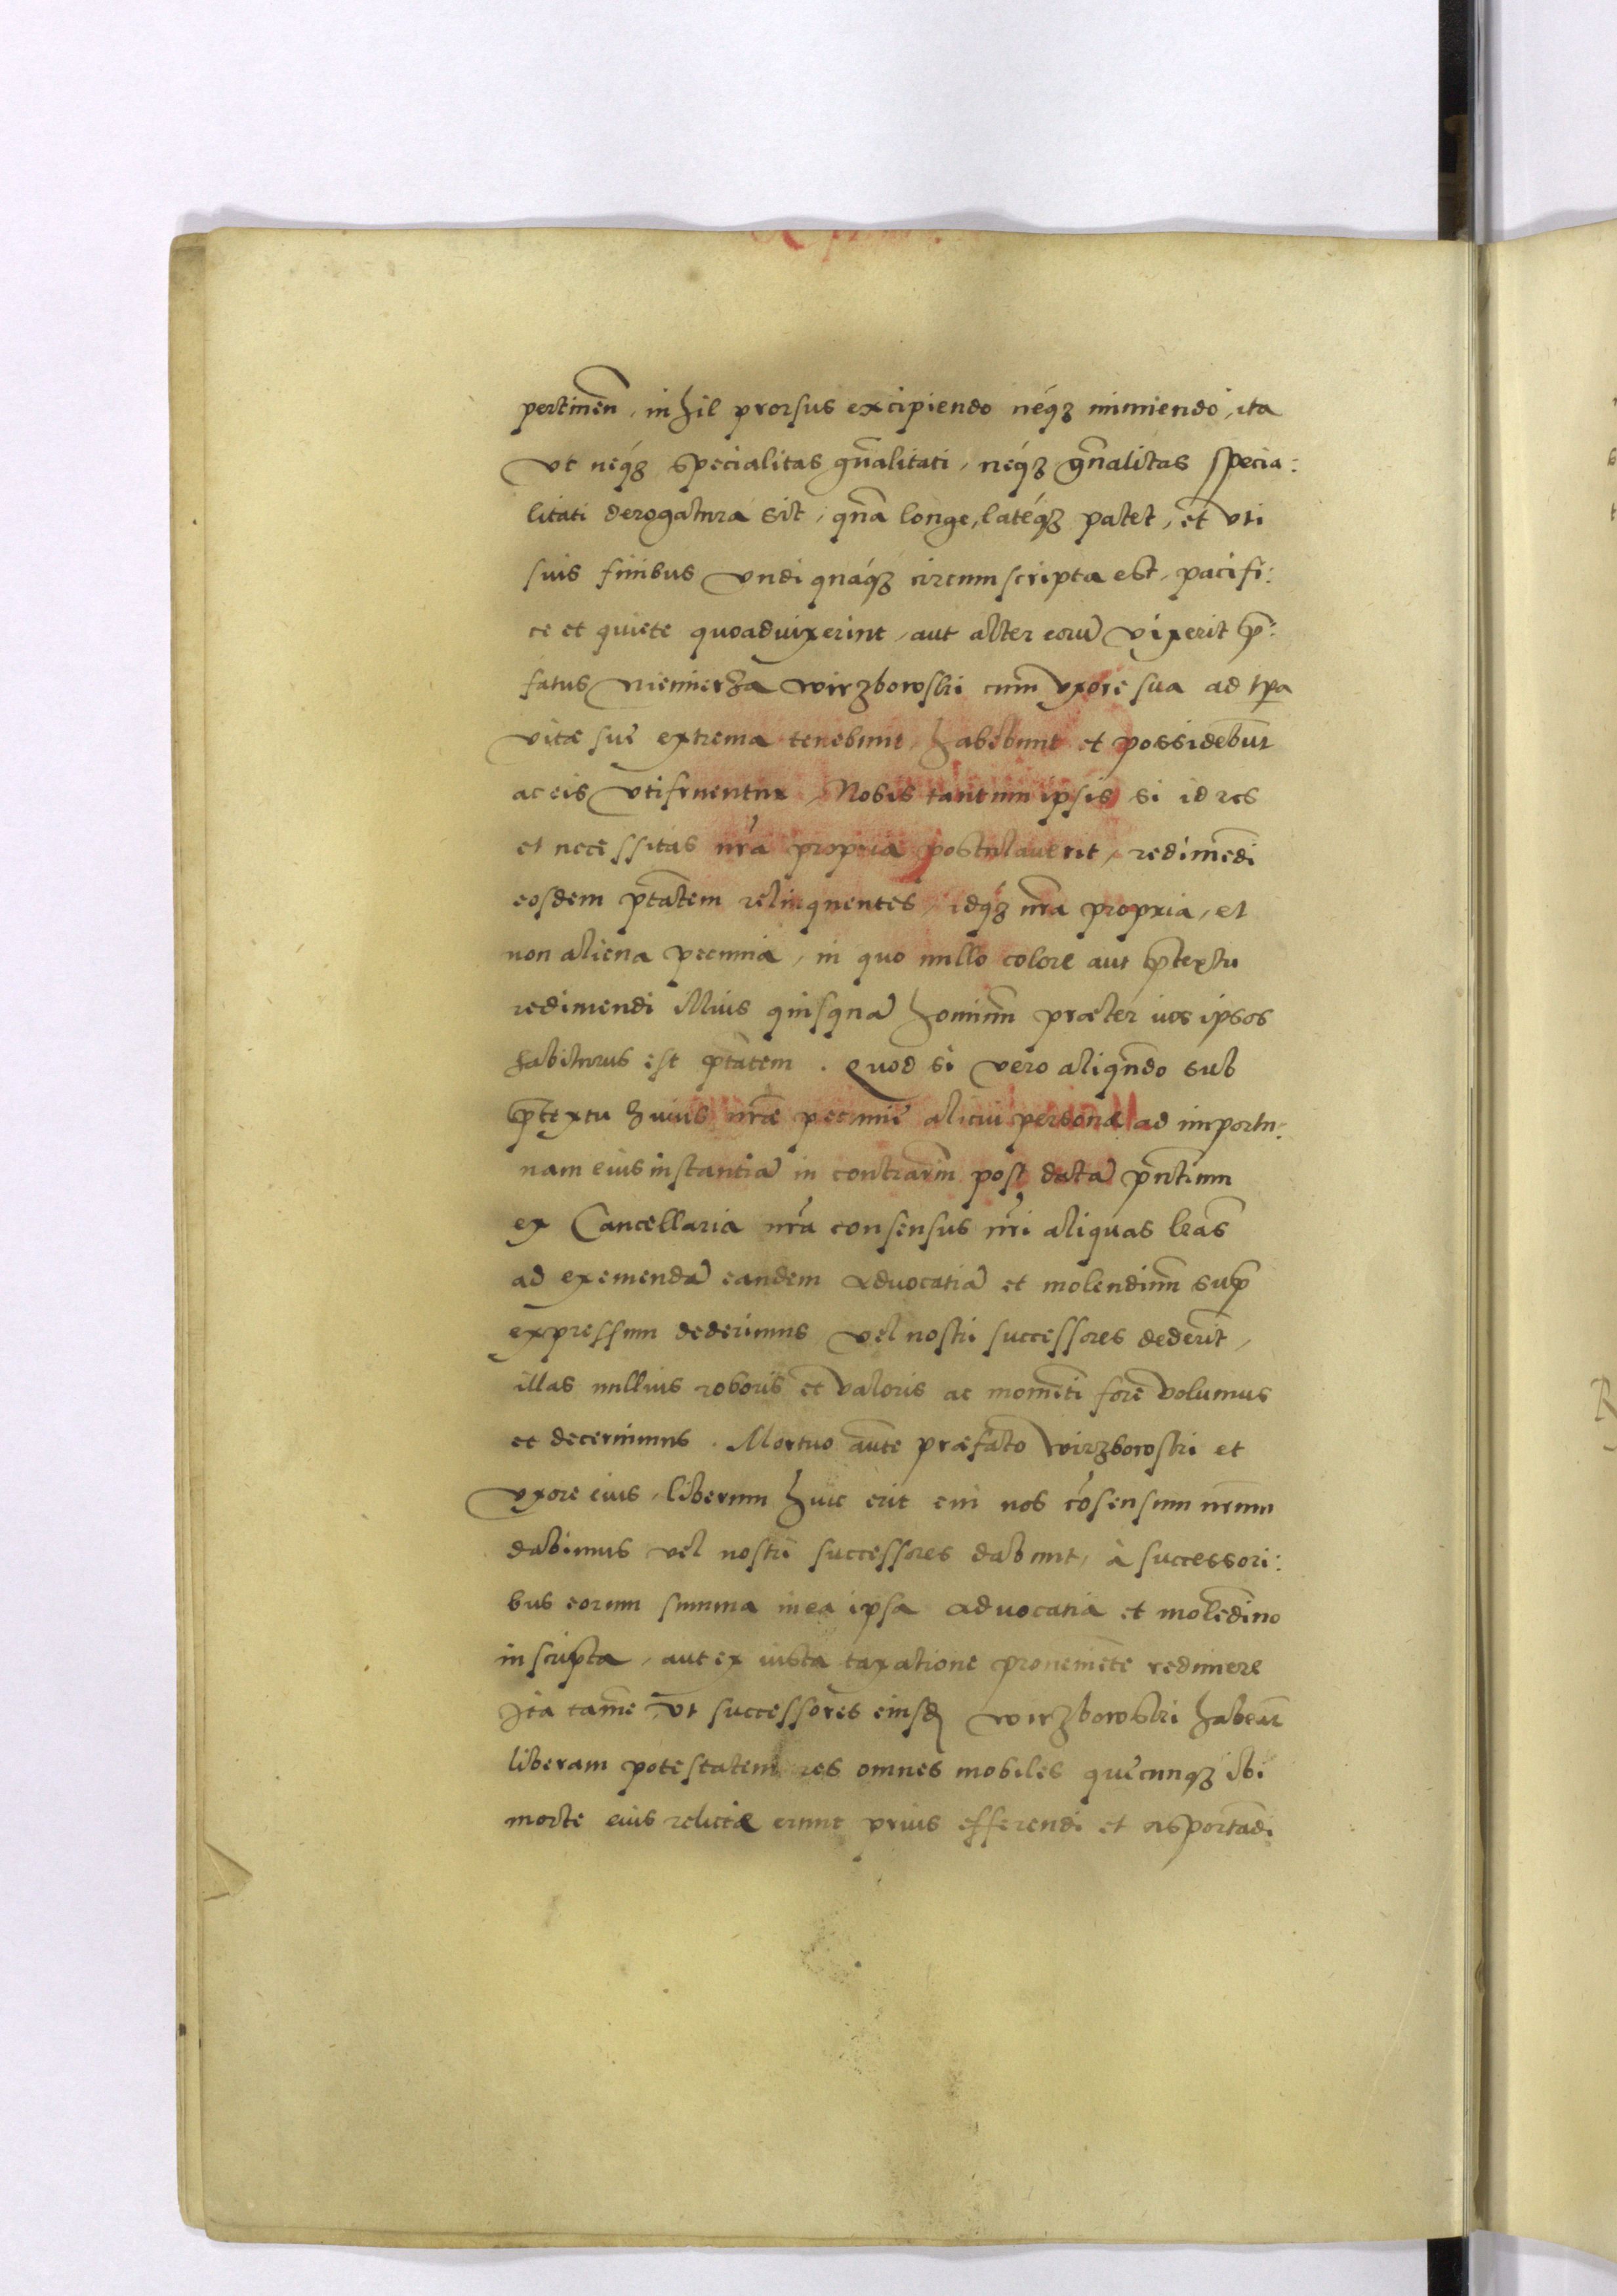 pertineñ, nihil prorsus excipiendo neq́ꝫ minuendo, ita
vt neq́ꝫ specialitas gn̄alitati, neq́ꝫ gn̄alitas specia:
litati derogatura sit, qūa longe, lateq́ꝫ patet, et vti
suis finibus vndiquaq́ꝫ circumscripta est, pacifi:
ce et quiete quoad vixerint, aut alter eorū vixerit p̄:
fatus Niemierza Wirzbowski cum vxore sua ad tp̄a
vitæ suę extrema tenebunt, habebunt et possidebūt
ac eis vtifruentur, Nobis tantum ipsis si id res
et necessitas nr̄a propria postulauerit, redimēdi
eosdem p̄tātem relinquentes, idq́ꝫ nr̄a propria, et
non aliena pecunia, in quo nullo colore aut p̄textu
redimendi illius quisquā hominum præter nos ipsos
habiturus est p̄tātem. Quod si vero aliqn̄do sub
p̄textu huius nr̄æ pecunię alicui personæ ad importu:
nam eius instantiā in contrariū post datā pn̄tium
ex Cancellaria nr̄a consensus nr̄i aliquas lr̄as
ad exemendā eandem aduocatiā et molendinū sup̄
expressum dederimus vel nostri successores dederit,
illas nullius roboris et valoris ac momēti fore volumus
et decernimus. Mortuo aūte præfato Wirzbowski et
vxore eius, liberum huic erit cui nos cōsensum nr̄um
dabimus vel nostri successores dabunt, à successori:
bus eorum summa in ea ipsa aduocatia et molēdino
inscripta, aut ex iusta taxatione proueniēte redimere
Ita tamē vt successores eiusd̄ Wirzbowski habeāt
liberam potestatem res omnes mobiles quęcunqꝫ ibi
morte eius relictæ erunt prius efferendi et asportādi